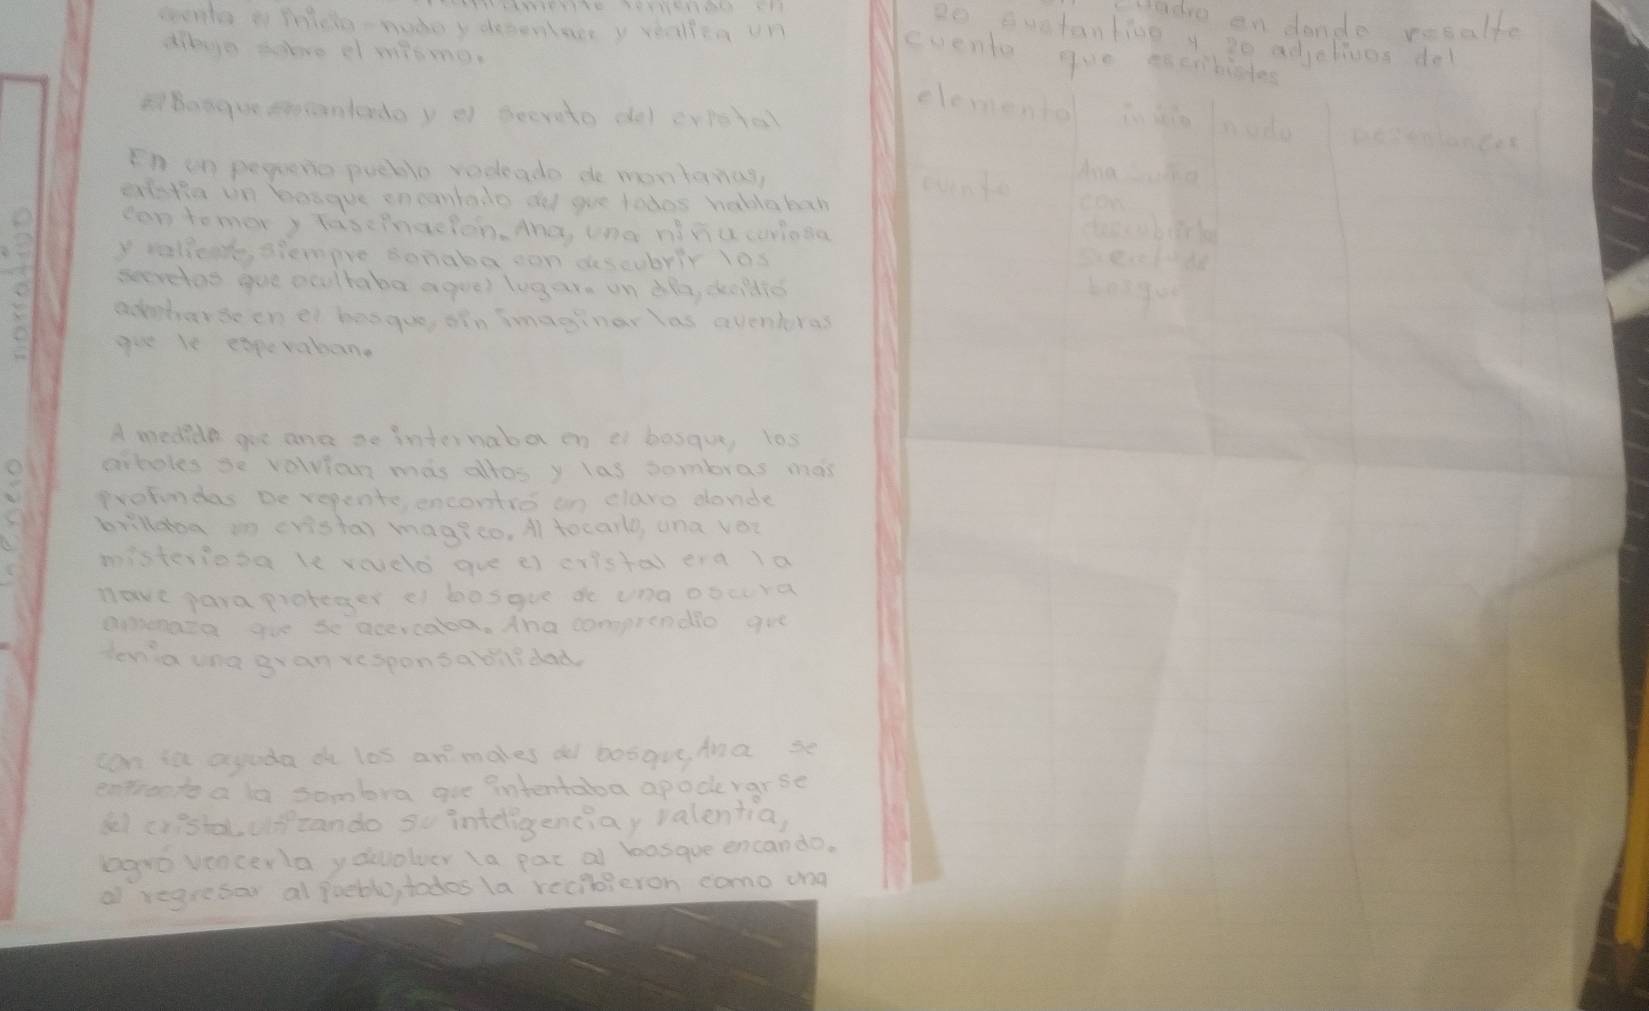 cuenta el inicio-nudo y desenlace y realiza un
dibujo sobre el mismo.
El Bosque encantado y el secreto del cristal
En un pequeño pueblo rodeado de montañas,
existia un bosque encantado del que todos hablaban
con temor y fascinación. Ana, una niña curiosa
y valiente, siempre soñaba con descubrir los
secretos que ocultaba aquel lugar. un día, decidió
adentrarse en el bosque, sin imaginar las aventuras
que le esperaban.
A medida que ana se internaba en el bosque, los
arboles se volvían más altos y las sombras más
profundas De repente, encontró un claro donde
brillaba un cristal magico. Al tocarlo, una voz
misteriosa le reveló que el cristal era la
llave para proteger el bosque de una oscura
amenaza que se acercaba. Ana comprendio que
tenía una gran responsabilidad.
con la ayuda de los animales del bosque, Ana se
enfrento a la sombra que intentaba apoderarse
del cristal. utilizando su inteligencia y valentía,
logró vencerla y devolver la paz al bosque encando.
al regresar al pueblo, todos la recibieron como una
narrativo
cuadro en donde resalte
20 sustantivo y 20 adjetivos del
cuento que escribistes
elemento inicio nudo desenlances
cuento Ana
con
descubierto
bosque